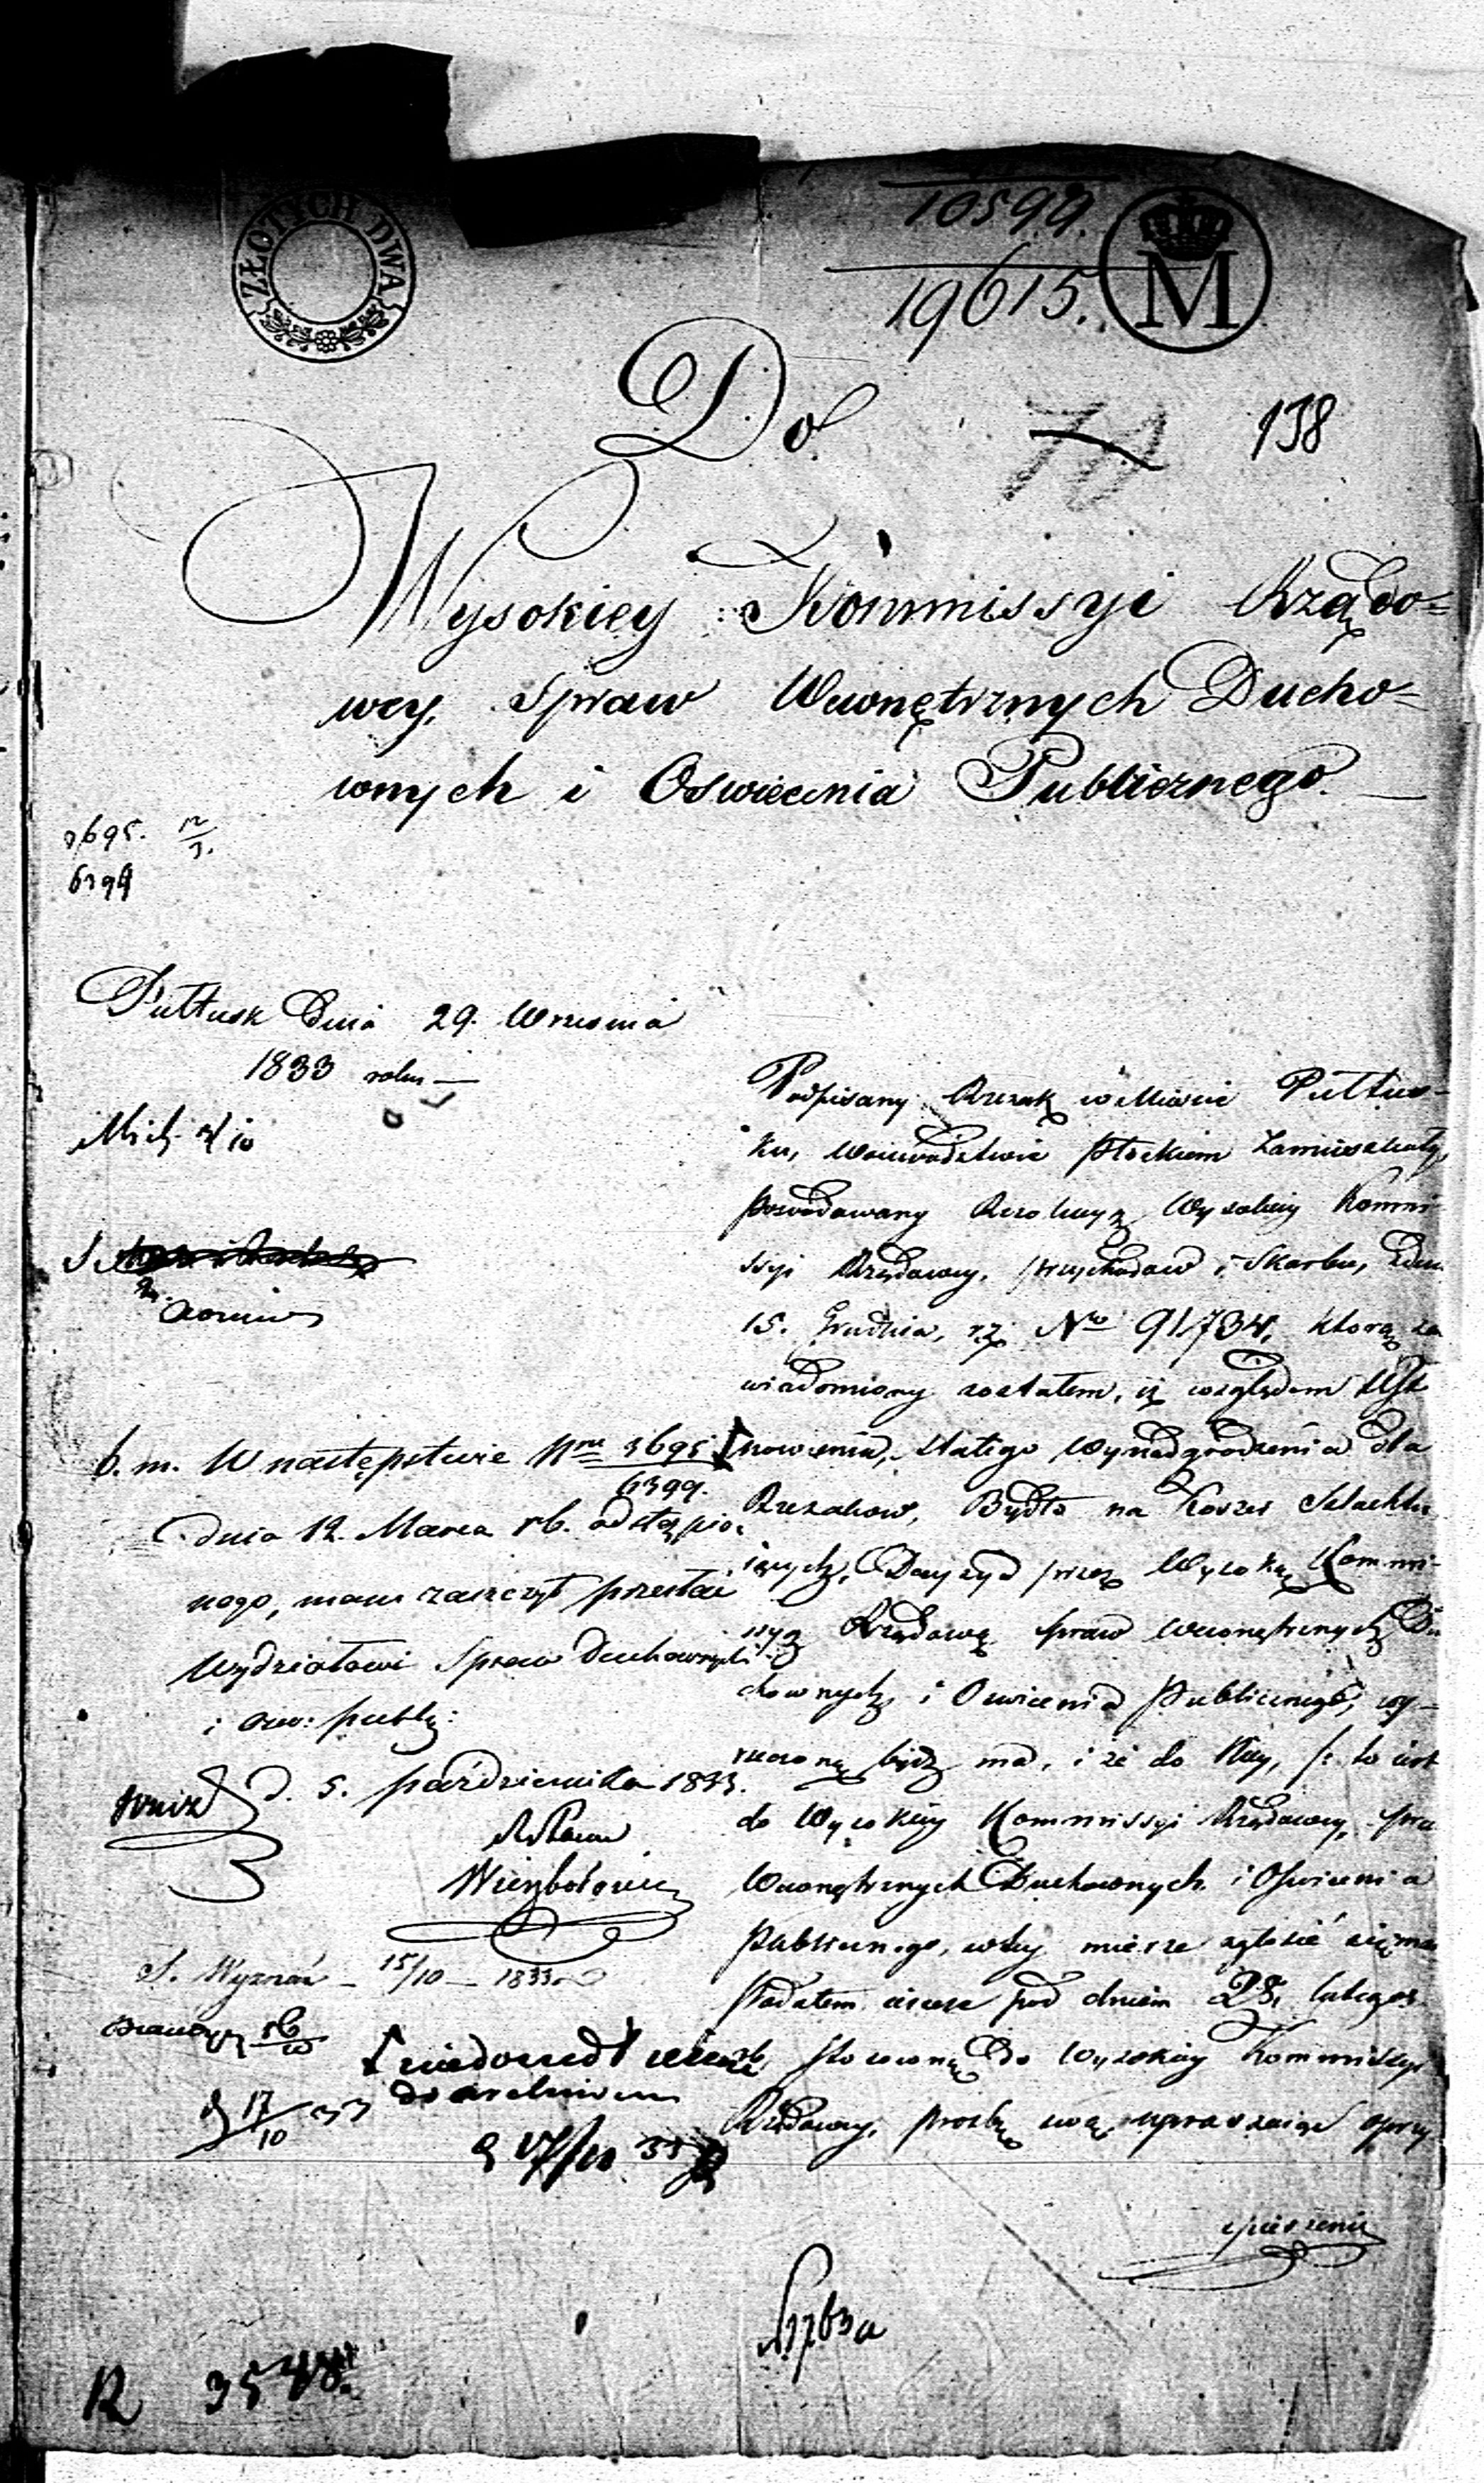 ZŁOTYCH DWA
10599.
19615.
M
138
Do
Wysokiey Kommissyi Rządo=
wey, Spraw Wewnętrznych Ducho=
wnych i Oswiecenia Publicznego.
3695.
6399
Pułtusk Dnia 29. Wrzesnia
1833 roku
Podpisany Rzezak w Miescie Pułtus-
ku, Woiewodztwie Płockiem Zamieszkały,
powodowany Rezolucyą Wysokiey Kommi-
ssyi Rządowey, Przychodow i Skarbu, z dnia
15. Grudnia, rz. No 91734, ktorą za
wiadomiony zostałem, iż względem Usta
nowienia, stałego Wynadgrodzenia dla
Rzezakow, Bydło na Koszer Szlachtu
iących, Decyzya przez Wysoką Kommi-
ssyą Rządową Spraw Wewnętrznych Du
chownych i Oswiecenia Publicznego, wy-
rzeczoną bydz ma, i że do Niey, to iest
do Wysokiey Kommissyi Rządowey, Spraw
Wewnętrznych Duchownych i Oswiecenia
Publicznego, w tey mierze zgłosić się mam
Podałem ieszcze pod dniem 28. lutego
rb. stosowną do Wysokiey Kommissyi
Rządowey, prozbę swą upraszaiąc o przy
spieszenie
b. m. W następstwie Nru 3695
6399.
dnia 12. Marca rb. odstąpio-
nego, mam zaszczyt przesłać
Wydziałowi Spraw Duchownych
i Oświ: publ:
d. 5. października 1833.
Wierzbołowicz
S. Wyznań 15/10 1833
17/10 33
17/10 33
R 3548